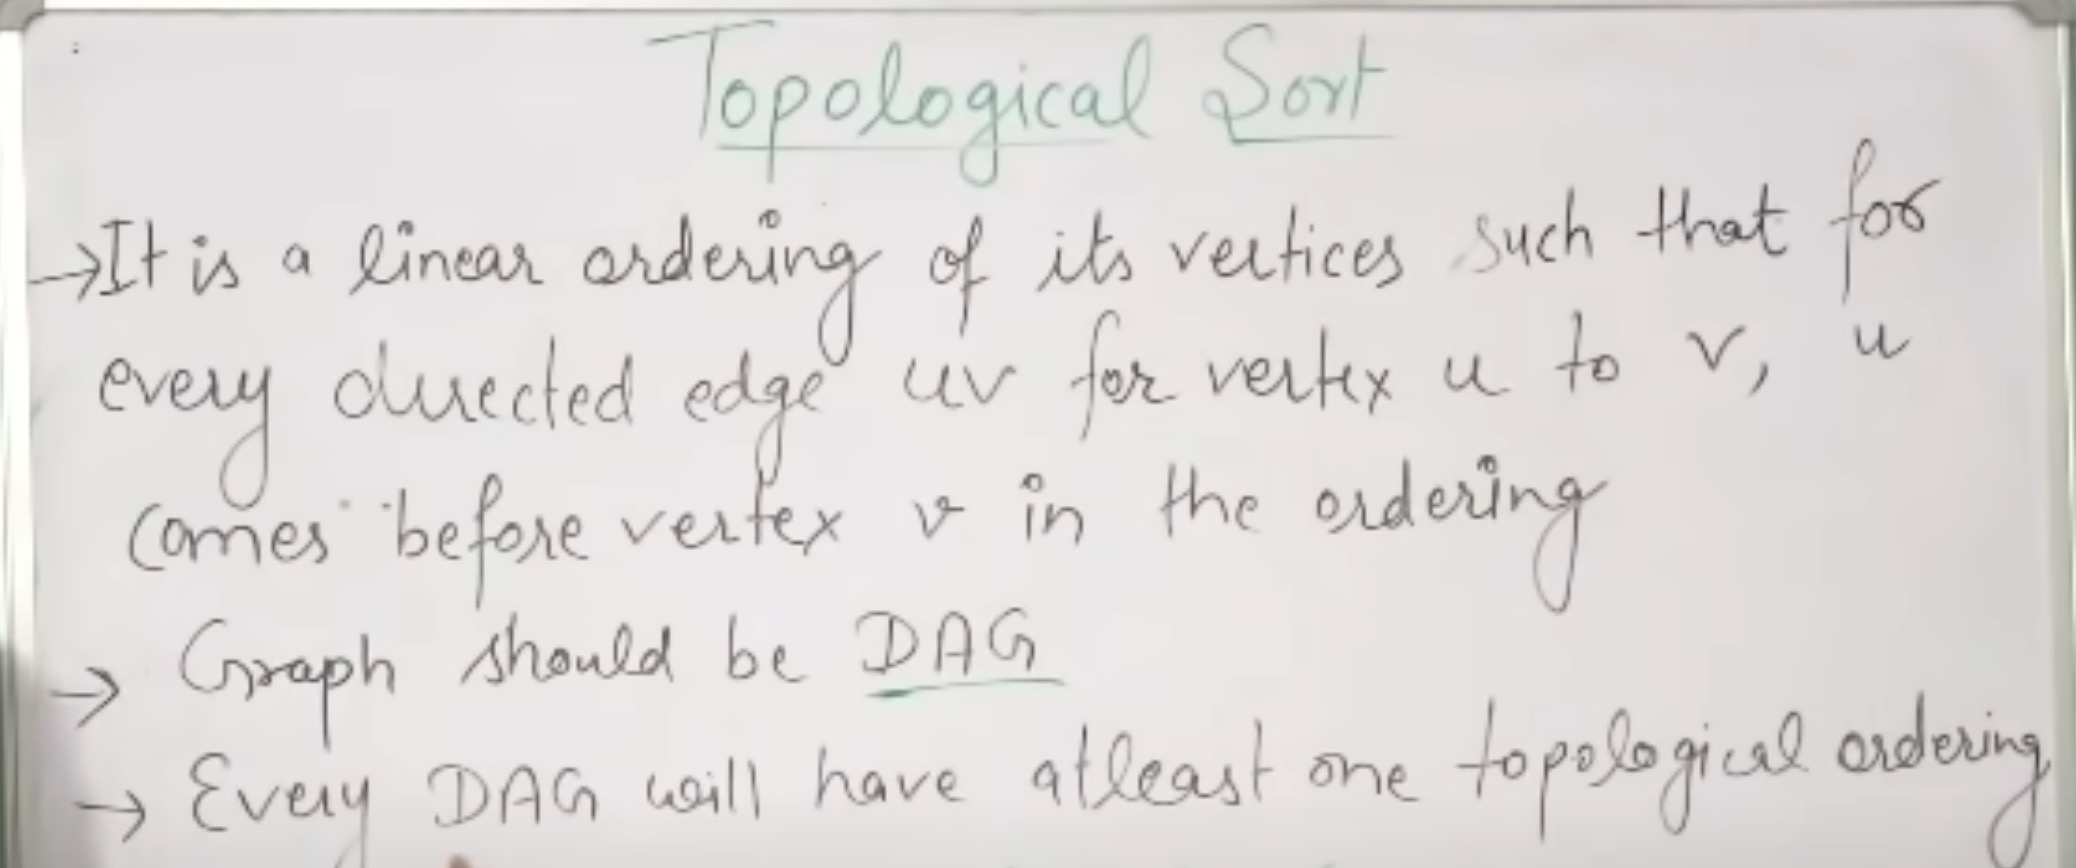 Topological Sort
→It is a linear ordering of its vertices such that for
every directed edge uv for vertex u to v, u
comes before vertex v in the ordering
→ Graph should be DAG
→ Every DAG will have atleast one topological ordering